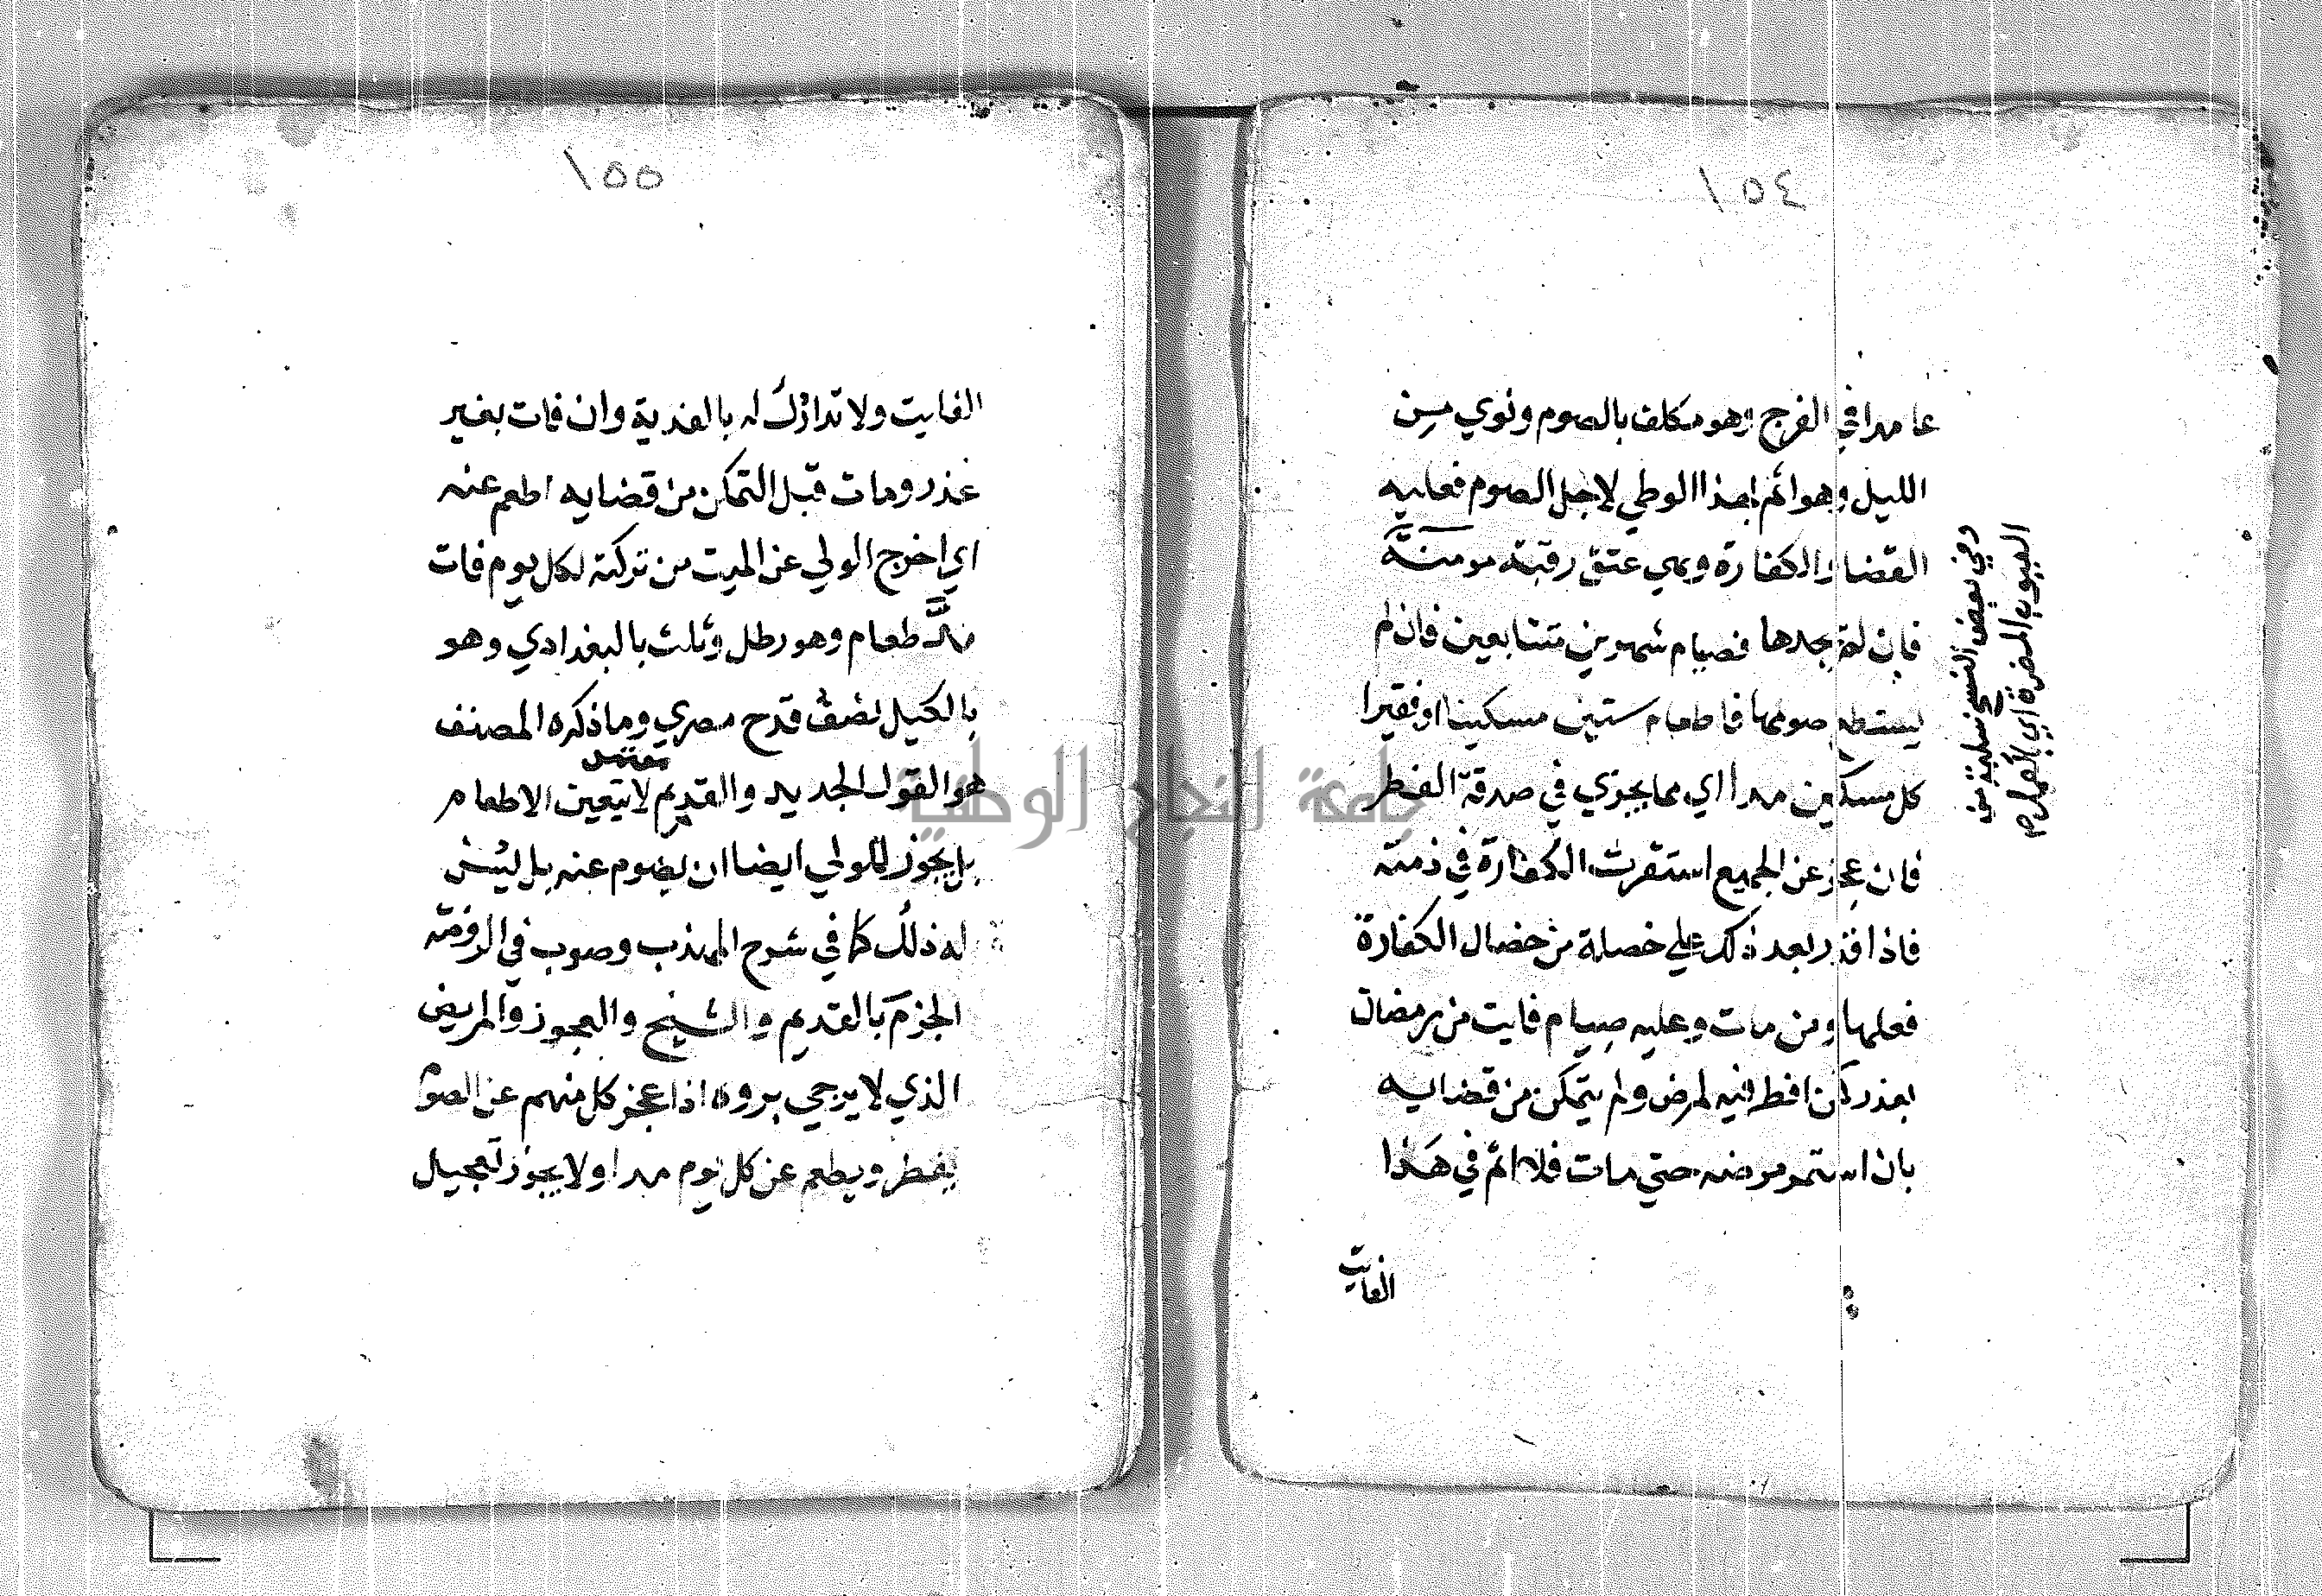 ١٥٤
عامدا في الفرج وهو مكلف بالصوم ونوي من
الليل وهو اثم بهذا الوطي لاجل الصوم فعليه
القضا والكفارة وهي عتق رقبة مومنة
فان لم يجدها فصيام شهرين متتابعين فان لم
يستطع صومهما فاطعام ستين مسكينا او فقيرا
كل مسكين مدا اي مما يجزي في صدقة الفطر
فان عجز عن الجميع استقرت الكفارة في ذمته
فاذا قدر بعد ذلك علي خصلة من خصال الكفارة
فعلها ومن مات وعليه صيام فايت من رمضان
بعذر كمن افطر فيه لمرض ولم يتمكن من قضايه
بان استمر مرضه حتي مات فلا اثم في هذا
الفايت
وفي بعض النسخ سليمة من
العيوب المضرة اي بالعمل
١٥٥
الفايت ولا تدارك له بالفدية وان فات بغير
عذر ومات قبل التمكن من قضايه اطعم عنه
اي اخرج الولي عن الميت من تركته لكل يوم فات
مد طعام وهو رطل وثلث بالبغدادي وهو
بالكيل نصف قدح مصري وما ذكره المصنف
هو القول الجديد والقديم لا يتعين الاطعام
بل يجوز للولي ايضا ان يصوم عنه بل ليسن
له ذلك كما في شرح المهذب وصوب في الروضة
الجزم بالقديم والشيخ والعجوز والمريض
الذي لا يرجي بروه اذا عجز كل منهم عن الصوم
يفطر ويطعم عن كل يوم مدا ولا يجوز تعجيل
جامعة النجاح الوطنية